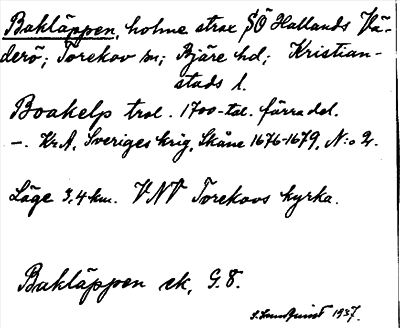 Bakläppen, holme strax SÖ Hallands Vä-
derö; Torekov sn; Bjäre hd; Kristian-
stads l.
Boakelp trol. 1700-tal. förra del.
—. KrA, Sveriges krig, Skåne 1676-1679, N:o 2.
Läge 3,4 km. VNV Torekovs kyrka.
Bakläppen ek, G.8.
S. Lundquist 1937.